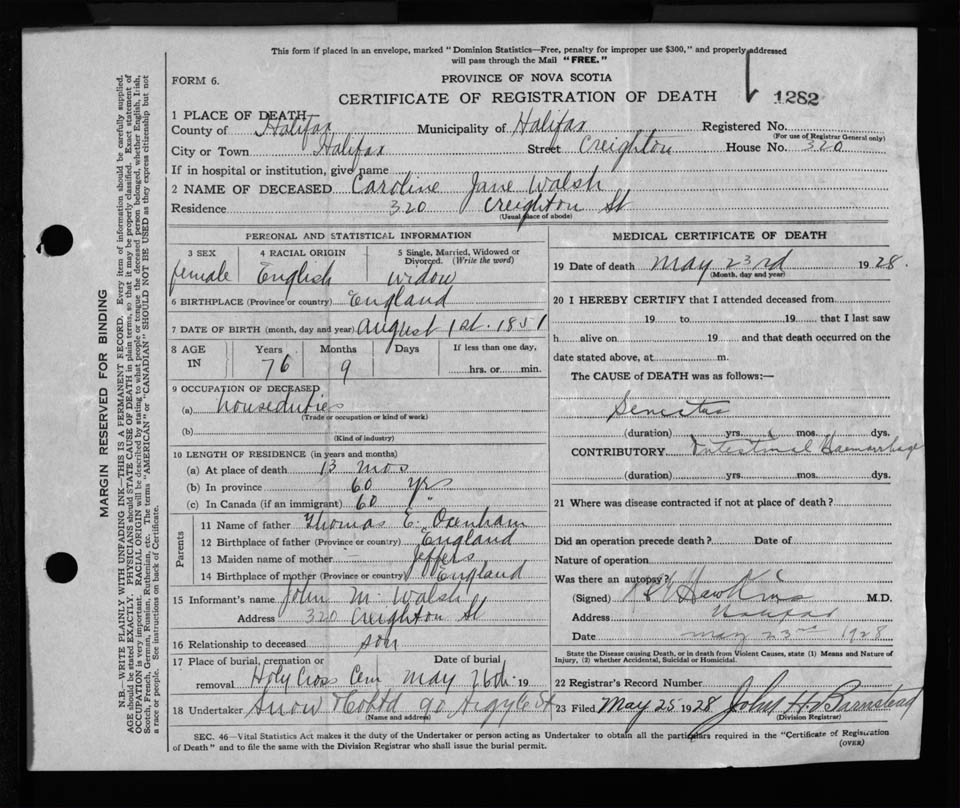 This form if placed in an envelope, marked "Dominion Statistics—Free, penalty for improper use $300," and properly addressed
will pass through the Mail "FREE."
FORM 6.
PROVINCE OF NOVA SCOTIA
CERTIFICATE OF REGISTRATION OF DEATH
1282
1 PLACE OF DEATH
County of Halifax Municipality of Halifax Registered No.
(For use of Registrar General only)
City or Town Halifax Street Creighton House No. 320
If in hospital or institution, give name
2 NAME OF DECEASED Caroline Jane Walsh
Residence 320 Creighton St
(Usual place of abode)
PERSONAL AND STATISTICAL INFORMATION
3 SEX 4 RACIAL ORIGIN 5 Single, Married, Widowed or
Divorced. (Write the word)
female English widow
6 BIRTHPLACE (Province or country) England
7 DATE OF BIRTH (month, day and year) August 1st. 1851
8 AGE IN Years Months Days If less than one day,
76 9 hrs. or min.
9 OCCUPATION OF DECEASED
(a) houseduties
(Trade or occupation or kind of work)
(b)
(Kind of industry)
10 LENGTH OF RESIDENCE (in years and months)
(a) At place of death 13 mos
(b) In province 60 yrs
(c) In Canada (if an immigrant) 60 "
Parents
11 Name of father Thomas E. Oxenham
12 Birthplace of father (Province or country) England
13 Maiden name of mother — Jeffers
14 Birthplace of mother (Province or country) England
15 Informant's name John M. Walsh
Address 320 Creighton St
16 Relationship to deceased son
17 Place of burial, cremation or Date of burial
removal Holy Cross Cem May 26th. 19
18 Undertaker Snow & Co Ltd 90 Argyle St
(Name and address)
MEDICAL CERTIFICATE OF DEATH
19 Date of death May 23rd 1928.
(Month, day and year)
20 I HEREBY CERTIFY that I attended deceased from
19 to 19 that I last saw
h alive on 19 and that death occurred on the
date stated above, at m.
The CAUSE of DEATH was as follows:—
Senectus
(duration) yrs. mos. dys.
CONTRIBUTORY Intestinal Haemorrhage
(duration) yrs. mos. dys.
21 Where was disease contracted if not at place of death?
Did an operation precede death? Date of
Nature of operation
Was there an autopsy?
(Signed) Hawkins M.D.
Address Halifax
Date May 23rd 1928
State the Disease causing Death, or in death from Violent Causes, state (1) Means and Nature of
Injury, (2) whether Accidental, Suicidal or Homicidal.
22 Registrar's Record Number
23 Filed May 25 1928 John H. Barnstead
(Division Registrar)
SEC. 46—Vital Statistics Act makes it the duty of the Undertaker or person acting as Undertaker to obtain all the particulars required in the "Certificate of Registration
of Death" and to file the same with the Division Registrar who shall issue the burial permit.
(OVER)
MARGIN RESERVED FOR BINDING
N.B.—WRITE PLAINLY WITH UNFADING INK—THIS IS A PERMANENT RECORD. Every item of information should be carefully supplied.
AGE should be stated EXACTLY. PHYSICIANS should STATE CAUSE OF DEATH in plain terms, so that it may be properly classified. Exact statement of
OCCUPATION is very important. RACIAL ORIGIN will be described by stating to what people or tongue the deceased person belonged, whether English, Irish,
Scotch, French, German, Russian, Ruthenian, etc. The terms "AMERICAN" or "CANADIAN" SHOULD NOT BE USED as they express citizenship but not
a race or people. See instructions on back of Certificate.